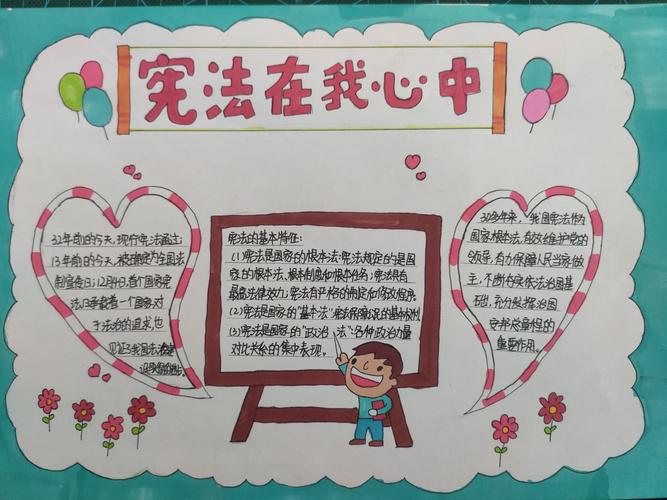 宪法在我心中
32年前的今天,现行宪法通过;
13年前的今天,被确定为全国法
制宣传日;12月4日,首个国家宪
法日承载着一个国家对
于法治的追求,也
见证了我国法治建
设
宪法的基本特征:
(1)宪法是国家的根本法:宪法规定的是国
家的根本法、根本制度和根本任务;宪法具有
最高法律效力;宪法有严格的制定和修改程序。
(2)宪法是国家的"基本法"
(3)宪法是国家的"政治法":各种政治力量
对比关系的集中表现。
30多年来,我国宪法作为
国家根本法,有效维护党的
领导,有力保障人民当家做
主,不断夯实依法治国基
础,充分发挥治国
安邦总章程的
重要作用。